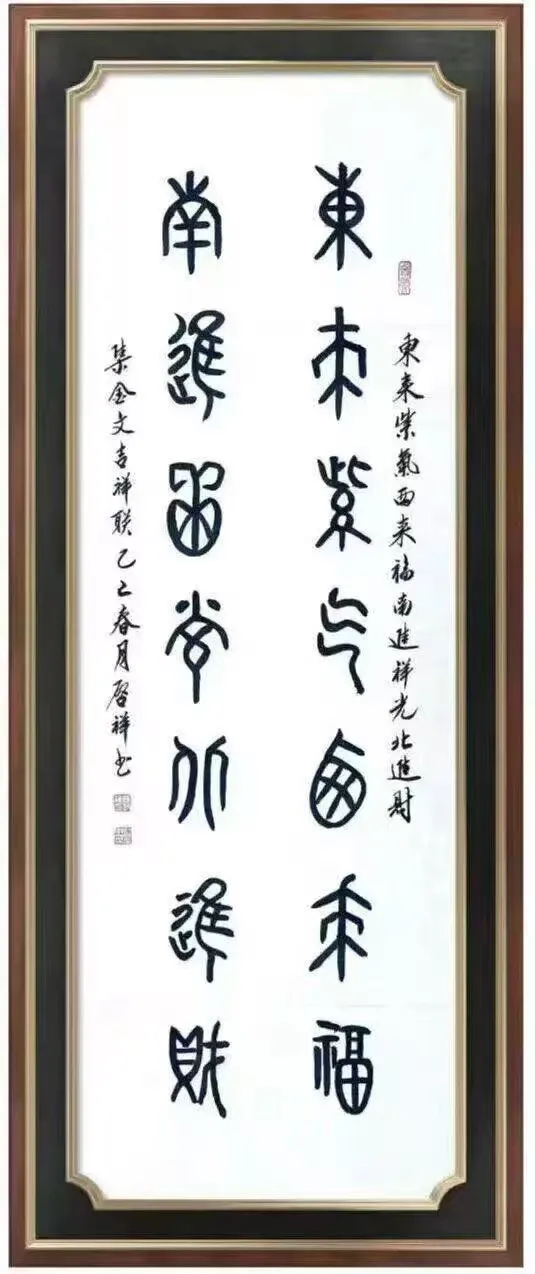 東来紫氣西来福南進祥光北進财
東來紫气西來福
南進祥光北進財
集金文吉祥联乙巳春月啓祥书